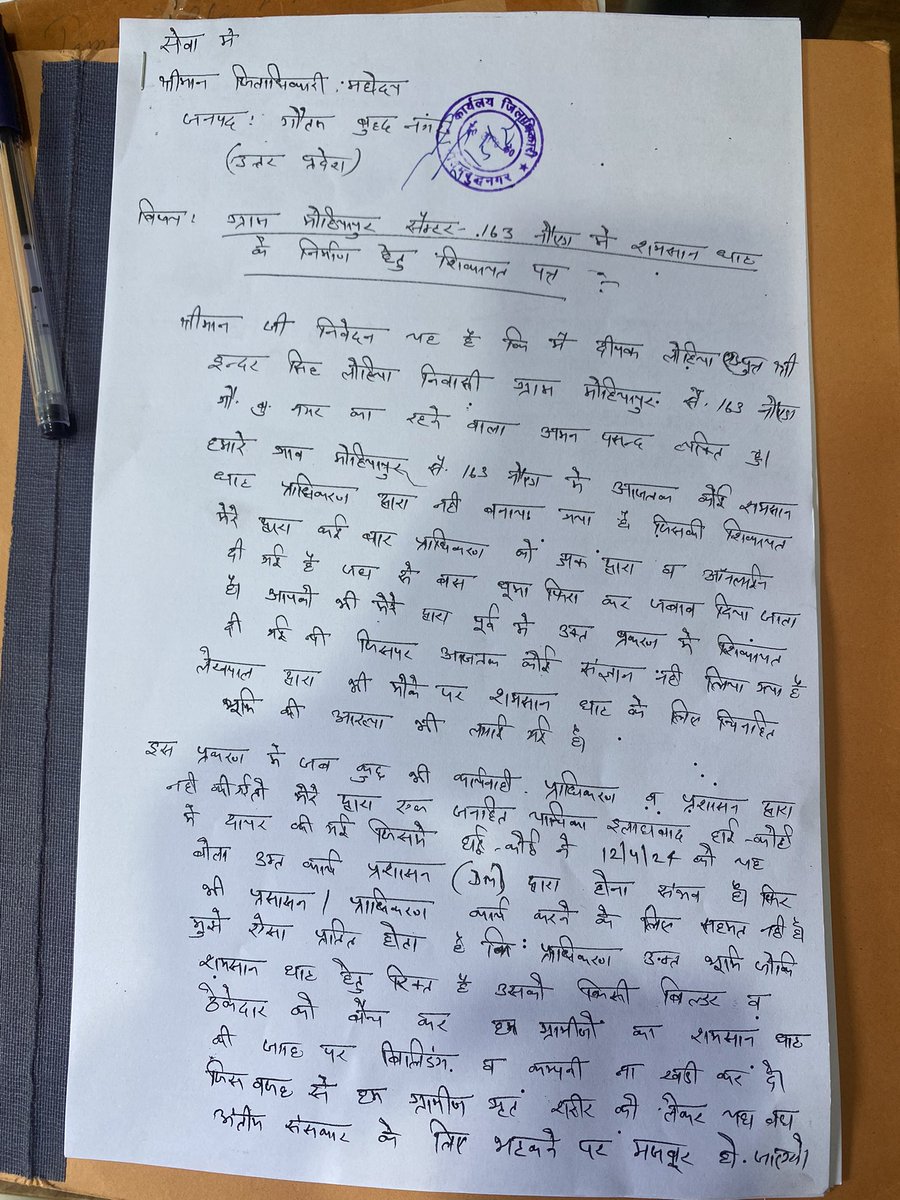 सेवा मे
श्रीमान जिलाधिकारी महोदय
जनपद : गौतम बुद्द नगर
(उत्तर प्रदेश)
कार्यालय जिलाधिकारी
विषय : ग्राम मोहियापुर सैक्टर - 163 नौएडा मे शमसान घाट
के निर्माण हेतु शिकायत पत्र
श्रीमान जी निवेदन यह है कि मै दीपक लोहिया सुपुत्र श्री
इन्दर सिह लोहिया निवासी ग्राम मोहियापुर सै. 163 नौएडा
गौ. बु. नगर का रहने वाला अमन पसन्द व्यक्ति हु।
हमारे गाव मोहियापुर सै. 163 नौएडा मे आजतक कोई शमसान
घाट प्राधिकरण द्वारा नही बनाया गया है। जिसकी शिकायत
मेरे द्वारा कई बार प्राधिकरण को डाक द्वारा व ऑनलाईन
दी गई है जहा से बस घूमा फिरा कर जवाब दिया जाता
है। आपको भी मेरे द्वारा पूर्व मे उक्त प्रकरण मे शिकायत
दी गई थी जिसपर आजतक कोई संज्ञान नही लिया गया है
लेखपाल द्वारा भी मौके पर शमसान घाट के लिए चिन्हित
भूमि की आख्या भी लगाई गई है।
इस प्रकरण मे जब कुछ भी कार्यवाही प्राधिकरण व प्रशासन द्वारा
नही की गई तो मेरे द्वारा एक जनहित याचिका इलाहाबाद हाई-कोर्ट
मे दायर की गई जिसमे हाई-कोर्ट ने 12/4/24 को यह
बोला उक्त कार्य प्रशासन (DM) द्वारा होना संभव है। फिर
भी प्रसासन / प्राधिकरण कार्य करने के लिए सहमत नही है।
मुझे ऐसा प्रतित होता है कि प्राधिकरण उक्त भूमि जोकि
शमसान घाट हेतु रिक्त है उसको किसी बिल्डर व
ठेकेदार को बैच कर हम ग्रामीणों का शमसान घाट
की जगह पर बिल्डिंग व कम्पनी ना खडी कर दे।
जिस वजह से हम ग्रामीण मृत शरीर को लेकर यहा वहा
अंतीम संस्कार के लिए भटकने पर मजबूर हो जाएगे।